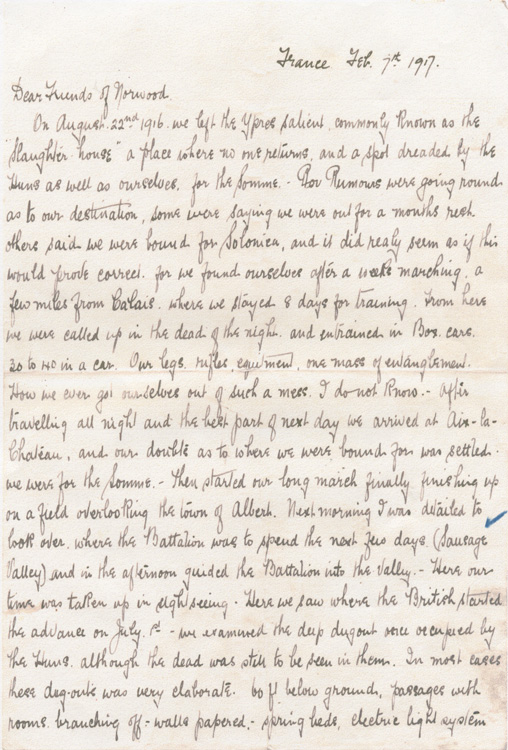 France Feb. 7th 1917.
Dear Friends of Norwood
On August. 22nd 1916. we left the Ypres salient, commonly known as the
"Slaughter house" a place where no one returns, and a spot dreaded by the
Huns as well as ourselves. for the Somme. - Rumours were going round
as to our destination, some were saying we were out for a months rest.
others said we were bound for Solonica, and it did realy seem as if this
would prove correct. for we found ourselves after a weeks marching, a
few miles from Calais. where we stayed 8 days for training. From here
we were called up in the dead of the night. and entrained in Box. cars.
30 to 40 in a car. Our legs. rifles, equitment, one mass of entanglement.
How we ever got ourselves out of such a mess. I do not know. - After
travelling all night and the best part of next day we arrived at Aix-la-
Chateau, and our doubts as to where we were bound for was settled.
we were for the Somme. - Then started our long march finally finishing up
on a field overlooking the town of Albert. Next morning I was detailed to
look over. where the Battalion was to spend the next few days. (Sausage
Valley) and in the afternoon guided the Battalion into the Valley. - Here our
time was taken up in sightseeing. Here we saw where the British started
the advance on July. 1st - we examined the deep dugout once occupied by
the Huns. although the dead was still to be seen in them. In most cases
these dug-outs was very elaborate. 60 ft below ground, passages with
rooms. branching off - walls papered. - spring beds, electric light system